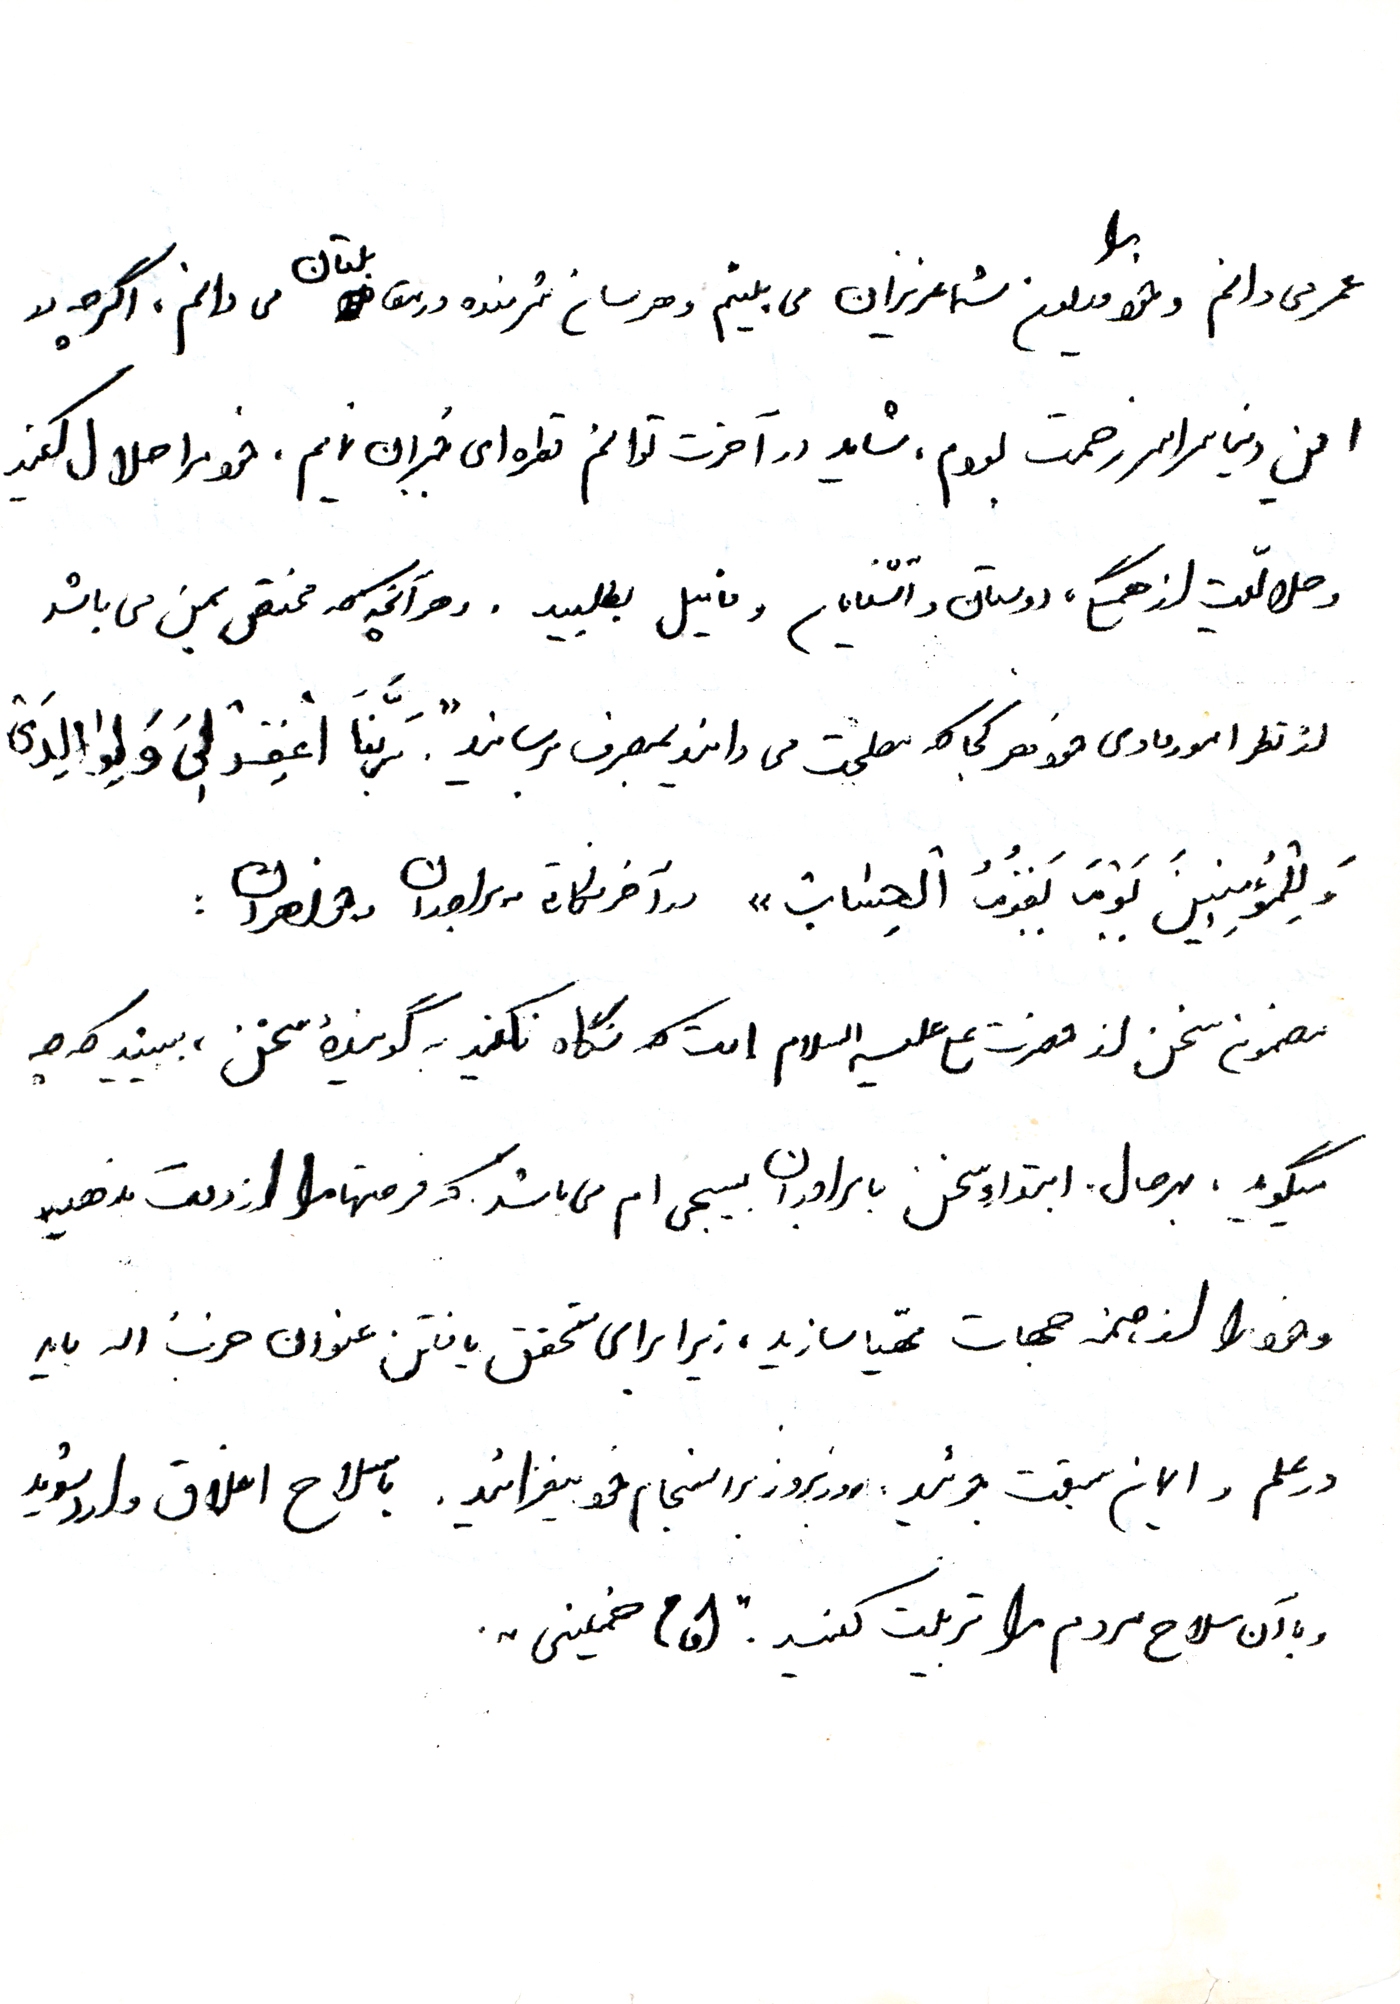 عمر می دانم و خود را مدیون شما عزیزان می بینم و هر سان شرمنده در مقابلتان می دانم، اگر چه در
این دنیا سراسر زحمت بودم، شاید در آخرت توانم قطره ای جبران نمایم، خود مرا حلال کنید
و حلالیت از همگی، دوستان و آشنایان و فامیل بطلبید. و هر آنچه که مختص بمن می باشد
از نظر امور مادی خود هر کجا که مصلحت می دانید بمصرف برسانید. "رَبَّنَا اغْفِرْ لِی وَ لِوالِدَیَّ
وَ لِلْمُؤْمِنِینَ یَوْمَ یَقُومُ الْحِسَابُ» در آخر نکاتی به برادران و خواهران :
مضمون سخن از حضرت علی علیه السلام است که نگاه نکنید به گویندهٔ سخن، ببینید که چه
میگوید. بهرحال. ابتداء سخن با برادران بسیجی ام می باشد. که فرصتها را از دست ندهید
و خود را از همه جهات مهیّا سازید، زیرا برای تحقق یافتن عنوان حزب اله باید
در علم و ایمان سبقت جوئید. روز بروز بر انسجام خود بیفزائید. با سلاح اخلاق وارد شوید
و با آن سلاح مردم را تربیت کنید. "امام خمینی"